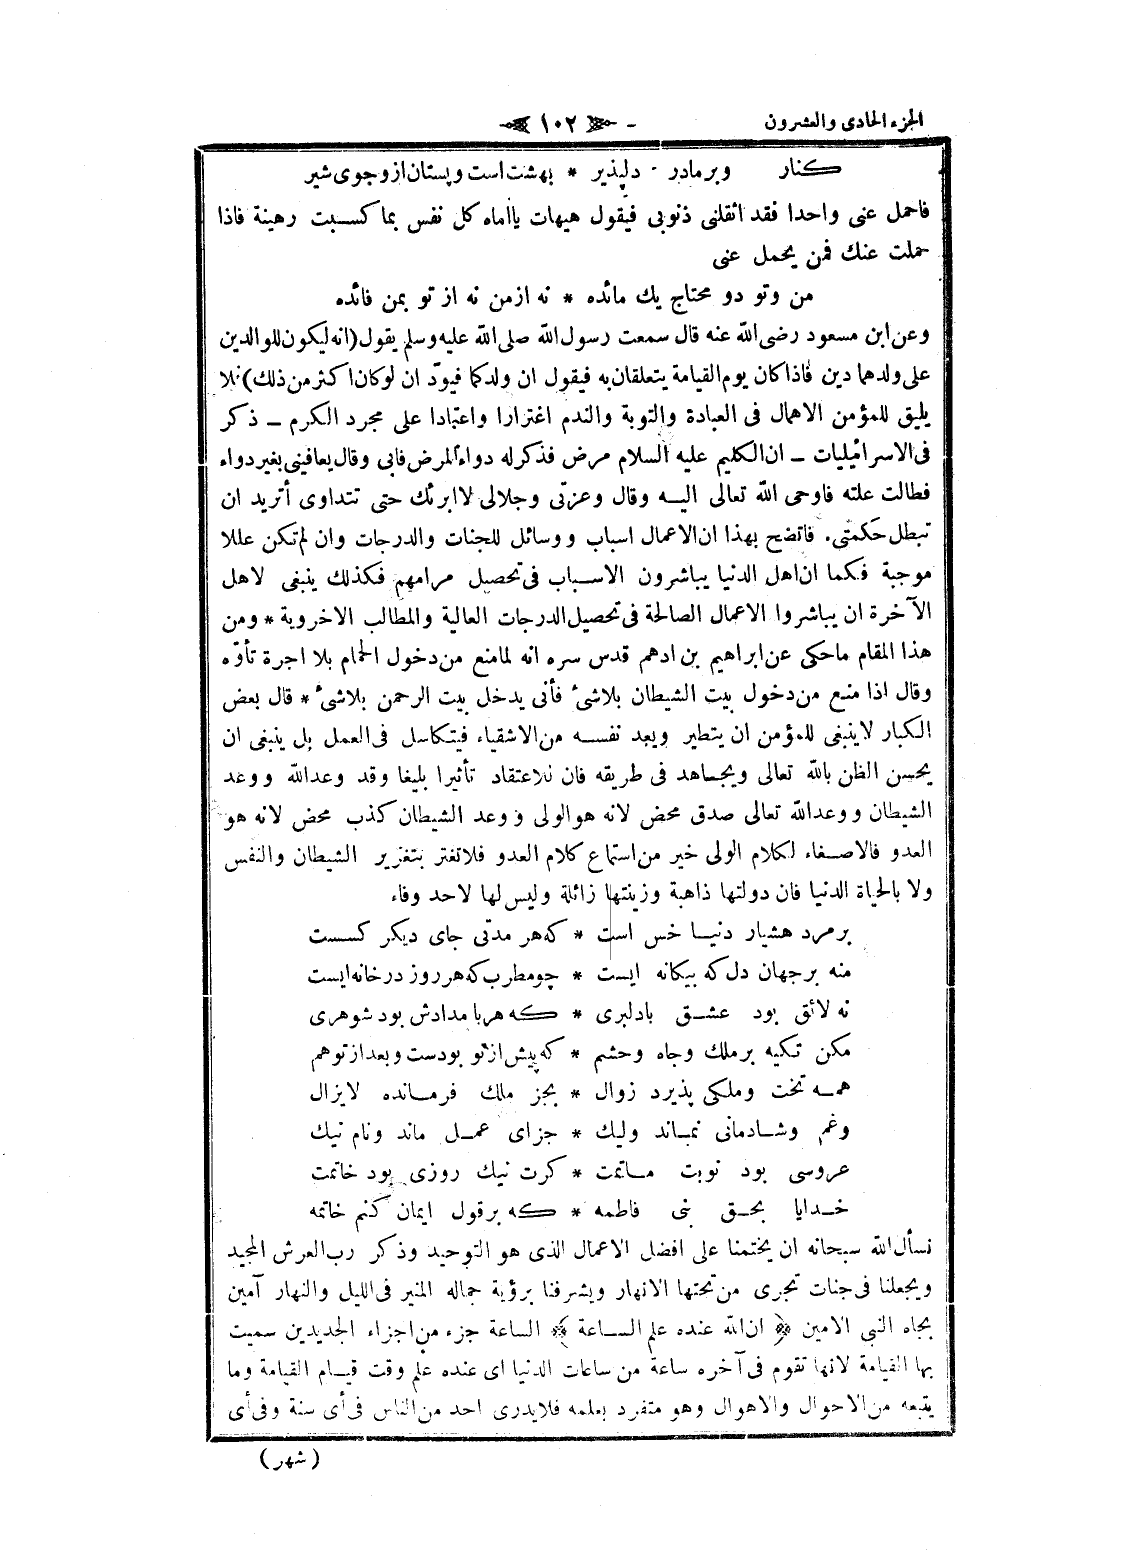 الجزء الحادى والعشرون
- ﴿ ١٠٢ ﴾
كنار وبرمادر دلپذير * بهشت است وپستان ازو جوى شير
فاحمل عنى واحدا فقد اثقلنى ذنوبى فيقول هيهات يااماه كل نفس بما كسبت رهينة فاذا
حملت عنك فمن يحمل عنى
من وتو دو محتاج يك مائده * نه ازمن نه از تو بمن فائده
وعن ابن مسعود رضى الله عنه قال سمعت رسول الله صلى الله عليه وسلم يقول (انه ليكون للوالدين
على ولدهما دين فاذا كان يوم القيامة يتعلقان به فيقول ان ولدكما فيودّ ان لوكان اكثر من ذلك) فلا
يليق للمؤمن الاهمال فى العبادة والتوبة والندم اغترارا واعتمادا على مجرد الكرم ـ ذكر
فى الاسرائيليات ـ ان الكليم عليه السلام مرض فذكر له دواء المرض فابى وقال يعافينى بغير دواء
فطالت علته فاوحى الله تعالى اليه وقال وعزتى وجلالى لا ابرئك حتى تتداوى أتريد ان
تبطل حكمتى. فاتضح بهذا ان الاعمال اسباب ووسائل للجنات والدرجات وان لم تكن عللا
موجبة فكما ان اهل الدنيا يباشرون الاسباب فى تحصيل مرامهم فكذلك ينبغى لاهل
الآخرة ان يباشروا الاعمال الصالحة فى تحصيل الدرجات العالية والمطالب الاخروية * ومن
هذا المقام ماحكى عن ابراهيم بن ادهم قدس سره انه لما منع من دخول الحمام بلا اجرة تأوّه
وقال اذا منع من دخول بيت الشيطان بلاشئ فأنى يدخل بيت الرحمن بلاشئ * قال بعض
الكبار لاينبغى للمؤمن ان يتطير ويعد نفسه من الاشقياء فيتكاسل فى العمل بل ينبغى ان
يحسن الظن بالله تعالى ويجاهد فى طريقه فان للاعتقاد تأثيرا بليغا وقد وعد الله ووعد
الشيطان ووعد الله تعالى صدق محض لانه هو الولى ووعد الشيطان كذب محض لانه هو
العدو فالاصغاء لكلام الولى خير من استماع كلام العدو فلا تغتر بتغرير الشيطان والنفس
ولا بالحياة الدنيا فان دولتها ذاهبة وزينتها زائلة وليس لها لاحد وفاء
بر مرد هشيار دنيا خس است * كه هر مدتى جاى ديكر كسست
منه بر جهان دل كه بيكانه ايست * چو مطرب كه هر روز در خانه ايست
نه لائق بود عشق بادلبرى * كه هر بامدادش بود شوهرى
مكن تكيه بر ملك وجاه وحشم * كه پيش از تو بودست وبعد از توهم
همه تخت وملكى پذيرد زوال * بجز ملك فرمانده لايزال
وغم وشادمانى نماند وليك * جزاى عمل ماند ونام نيك
عروسى بود نوبت ماتمت * كرت نيك روزى بود خاتمت
خدايا بحق بنى فاطمه * كه بر قول ايمان كنم خاتمه
نسأل الله سبحانه ان يختمنا على افضل الاعمال الذى هو التوحيد وذكر رب العرش المجيد
ويجعلنا فى جنات تجرى من تحتها الانهار ويشرفنا برؤية جماله المنير فى الليل والنهار آمين
بجاه النبى الامين ﴿ ان الله عنده علم الساعة ﴾ الساعة جزء من اجزاء الجديدين سميت
بها القيامة لانها تقوم فى آخره ساعة من ساعات الدنيا اى عنده علم وقت قيام القيامة وما
يتبعه من الاحوال والاهوال وهو متفرد بعلمه فلا يدرى احد من الناس فى أى سنة وفى أى
(شهر)